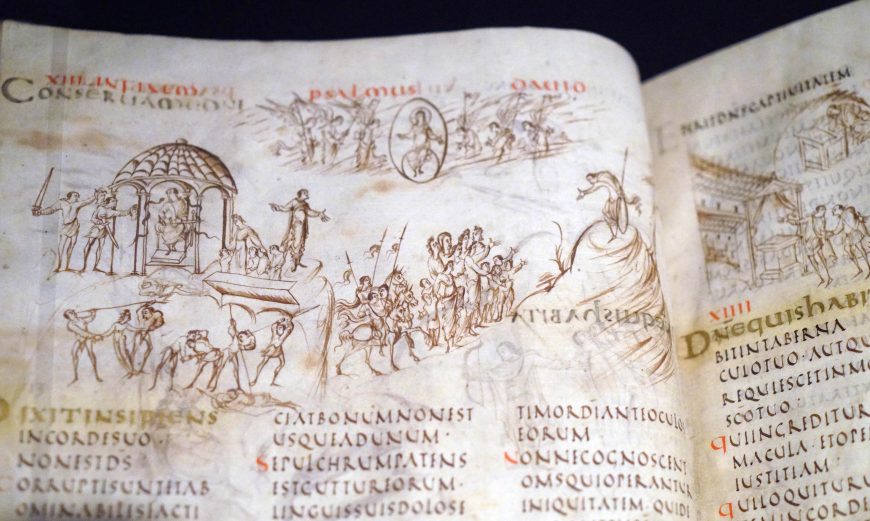 XIII INFINEM PSALMUS DAVID
CONSERVAMEDNI
DIXITINSIPIENS
INCORDESUO·
NONESTDS
CORRUPTISUNTETHAB
OMINABILESFACTI
CIATBONUMNONEST
USQUEADUNUM·
SEPULCHRUMPATENS
ESTGUTTUREORUM·
LINGUISSUISDOLOSE
TIMORDIANTEOCULO
EORUM
NONNECOGNOSCENT
OMSQUIOPERANTUR
INIQUITATEM· QUIDE
CAPTIVITATEM
XIIII
DNEQUISHABI
BITINTABERNA
CULOTUO· AUTQU
REQUIESCETINMO
SCOTUO·
QUIINGREDITUR
MACULA· ETOPE
IUSTITIAM·
QUILOQUITUR